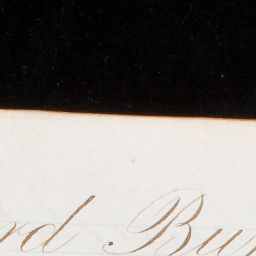 rd Bu